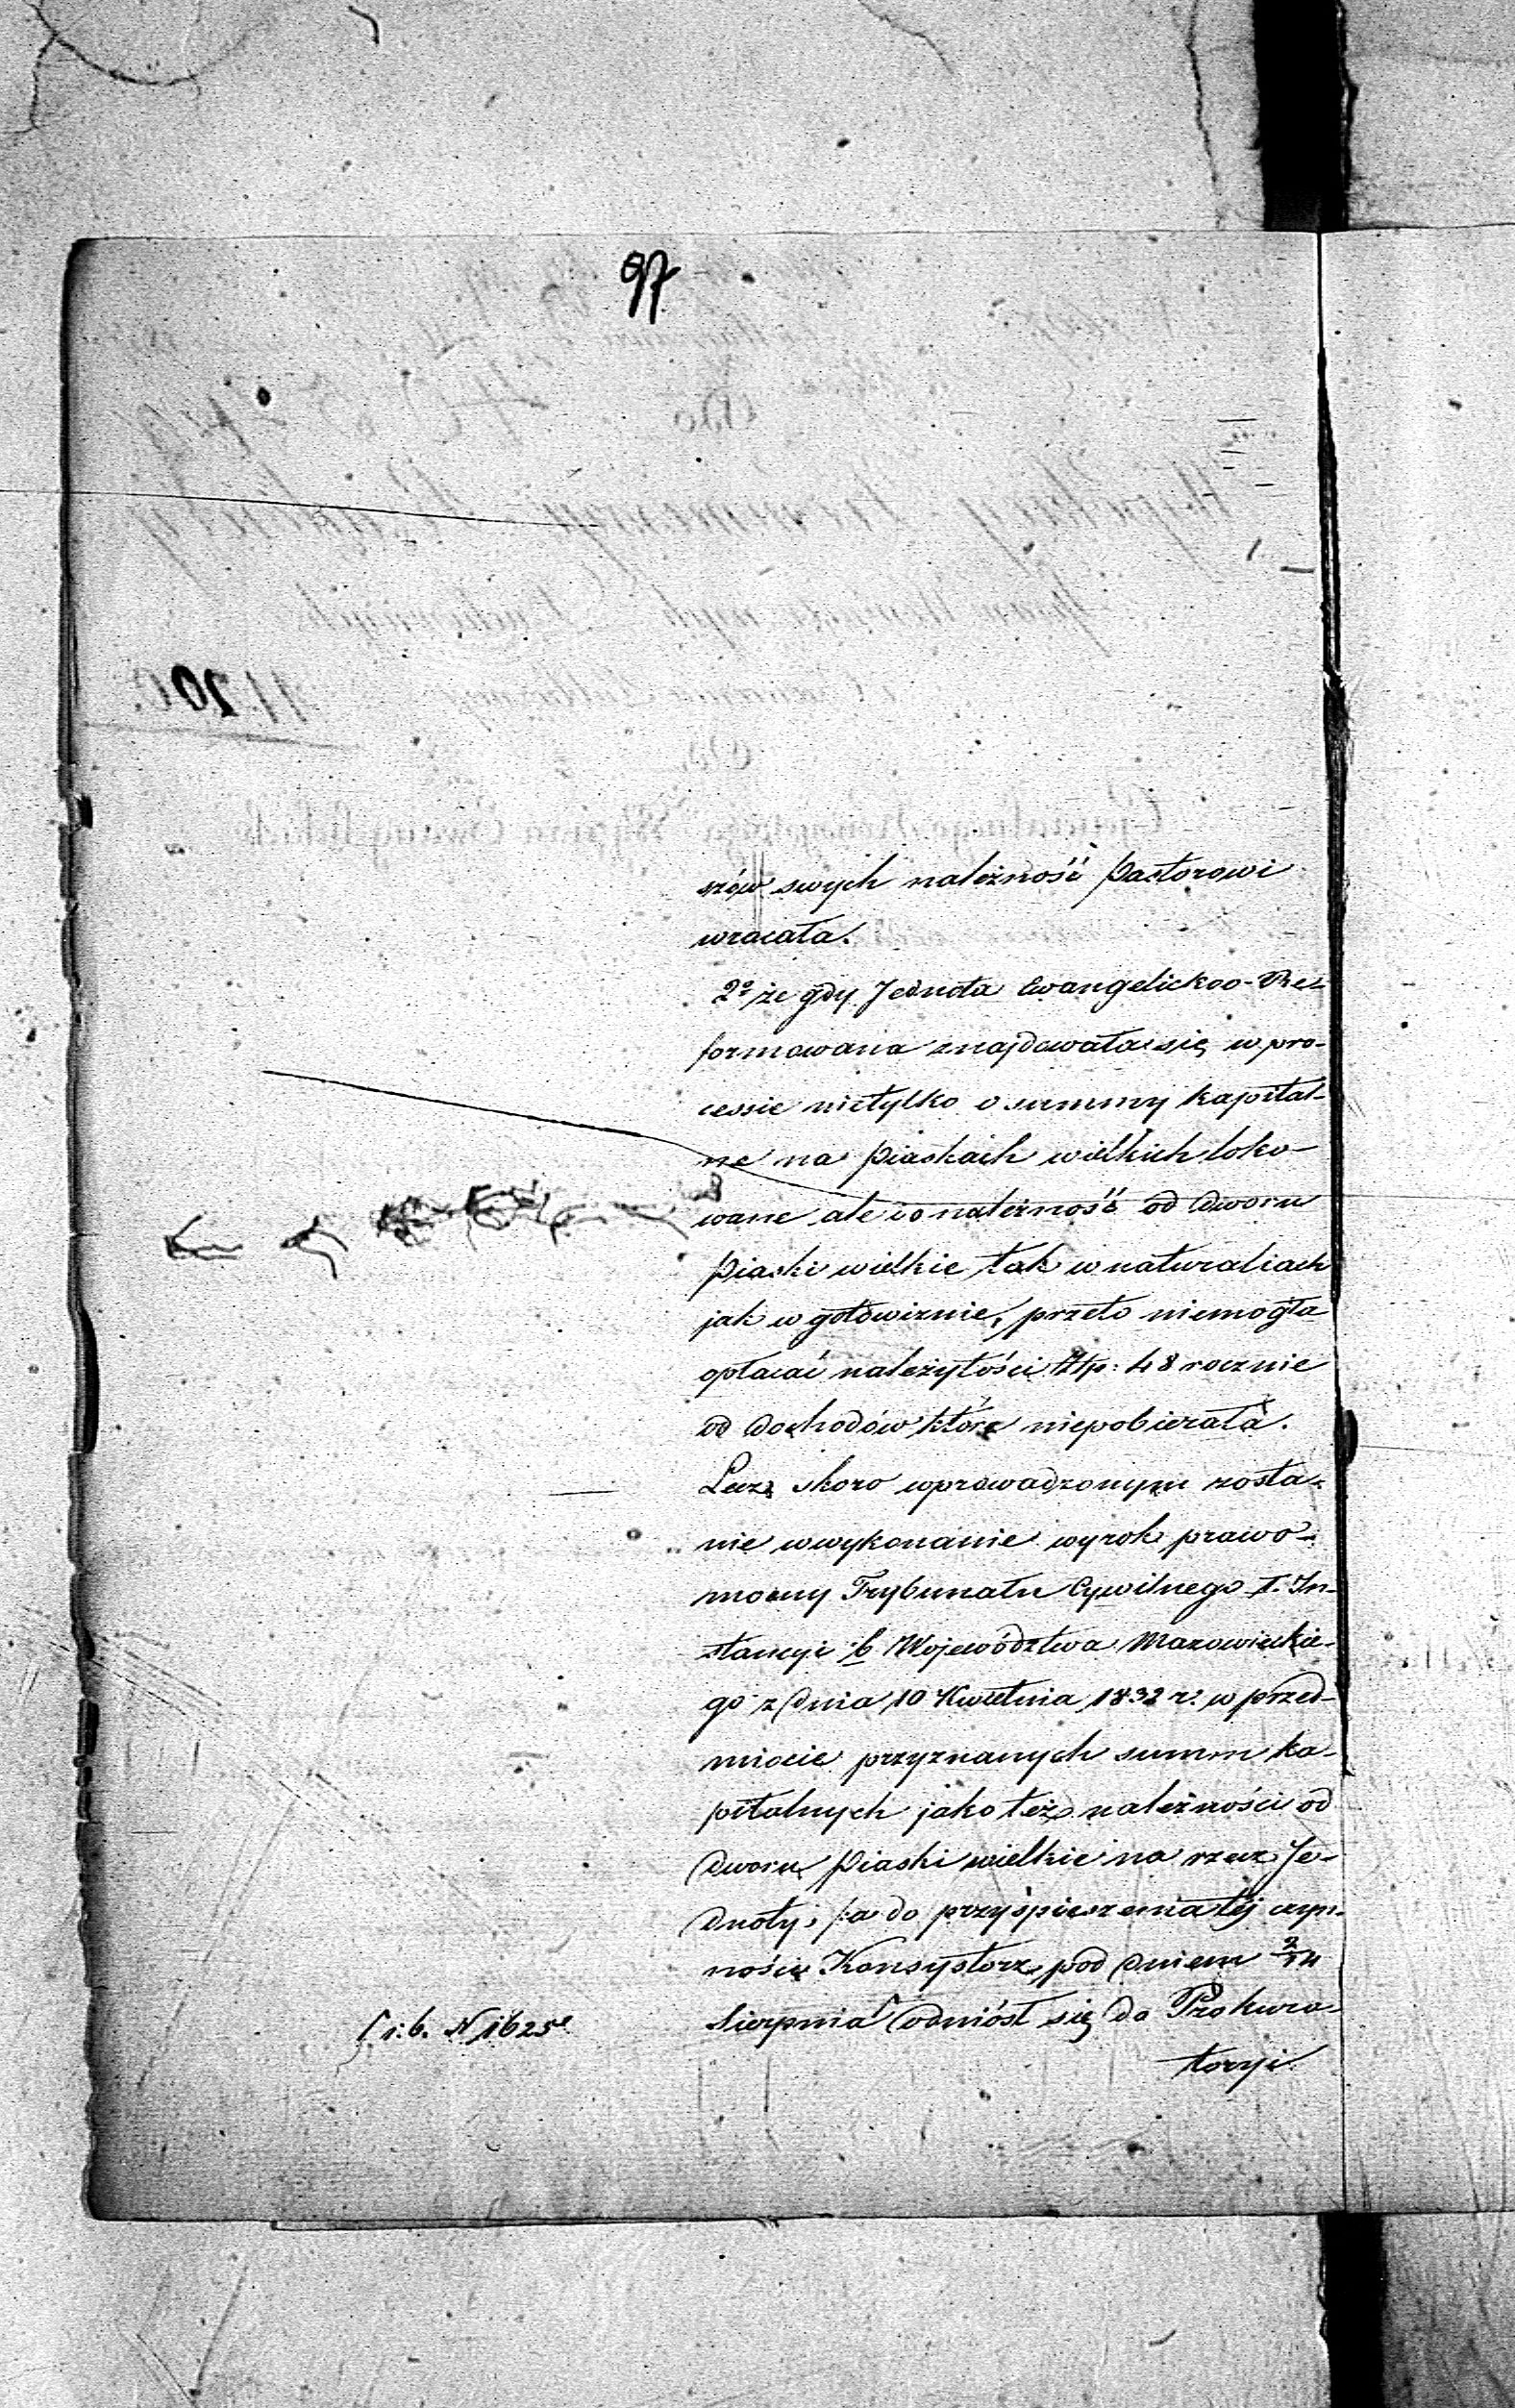 97
szów swych należność Pastorowi
wracała.
2º że gdy Jednota Ewangelicko-Re-
formowana znajdowała się w pro-
cessie nietylko o summy kapital-
ne na Piaskach wielkich loko-
wane ale i o należność od dworu
Piaski wielkie tak w naturaliach
jak w gotowiznie, przeto niemogła
opłacać należytości Złp: 48 rocznie
od dochodów które niepobierała.
Lecz skoro wprowadzonym zosta-
nie w wykonanie wyrok prawo-
mocny Trybunału Cywilnego I. In-
stancyi b Województwa Mazowieckie-
go z dnia 10 Kwietnia 1832 r. w przed-
miocie przyznanych summ ka-
pitalnych jako też należności od
dworu Piaski wielkie na rzecz Je-
dnoty, /:a do przyśpieszenia téj czyn-
ności Konsystorz pod dniem 2/14
Sierpnia odniósł się do Prokura-
toryi
r: b. N 1625